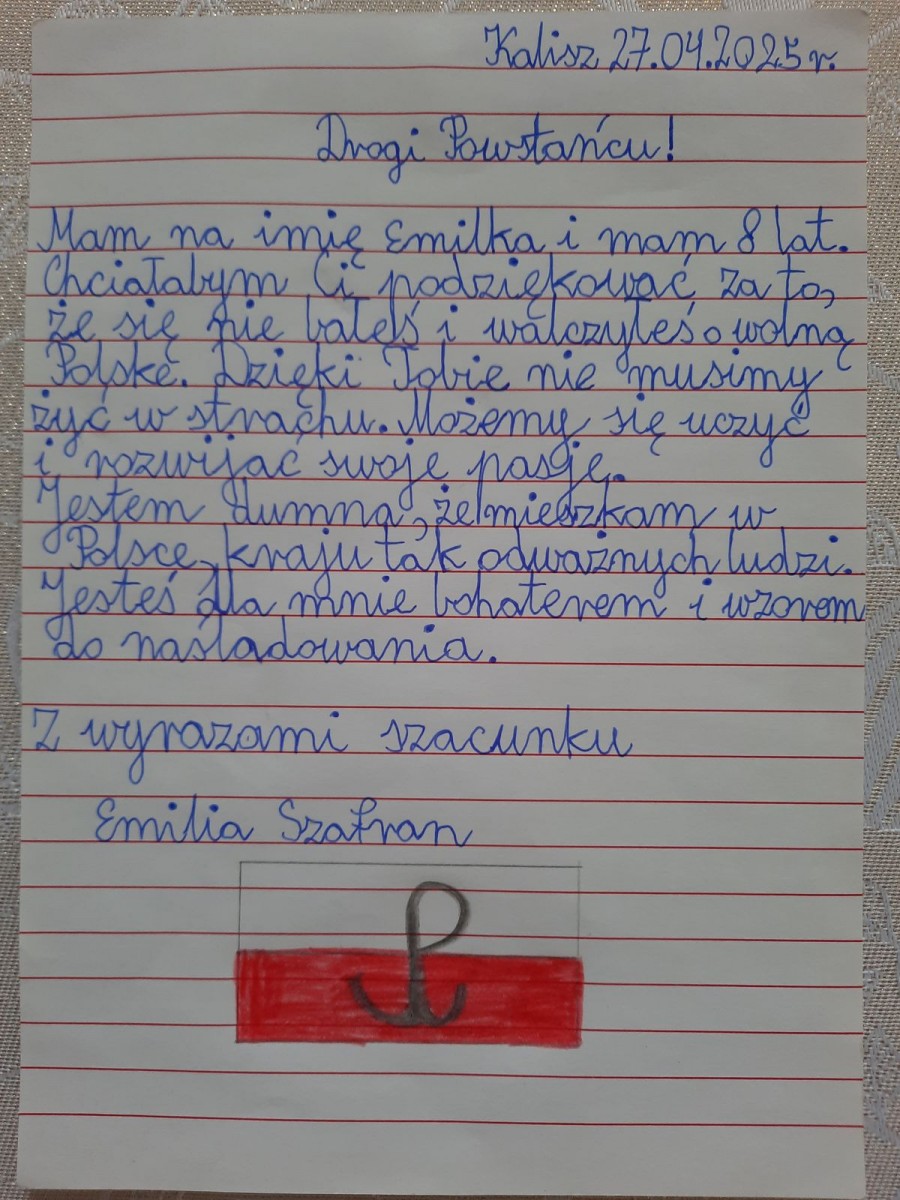 Kalisz 27.04.2025 r.
Drogi Powstańcu!
Mam na imię Emilka i mam 8 lat.
Chciałabym Ci podziękować za to,
że się nie bałeś i walczyłeś o wolną
Polskę. Dzięki Tobie nie musimy
żyć w strachu. Możemy się uczyć
i rozwijać swoje pasje.
Jestem dumna, że mieszkam w
Polsce, kraju tak odważnych ludzi.
Jesteś dla mnie bohaterem i wzorem
do naśladowania.
Z wyrazami szacunku
Emilia Szafran